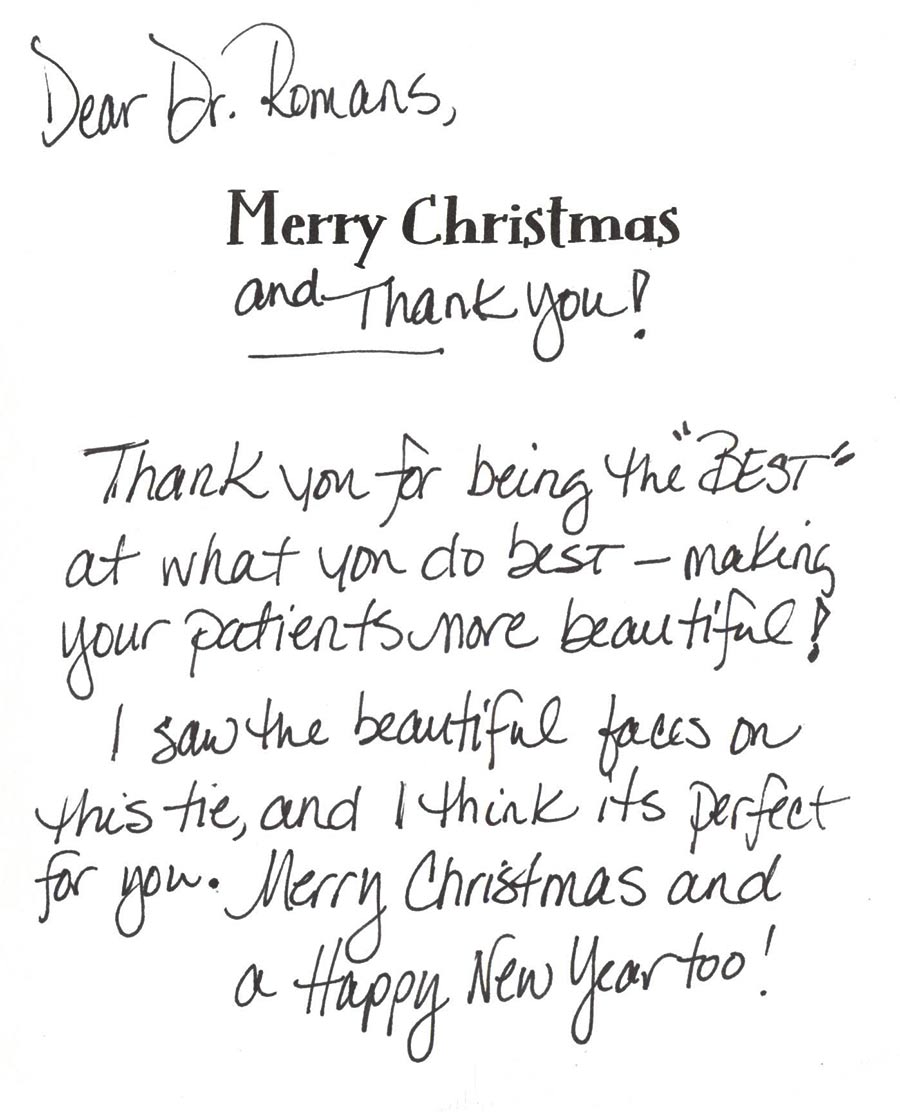 Dear Dr. Romans,
Merry Christmas
and Thank you!
Thank you for being the "BEST"
at what you do best – making
your patients more beautiful!
I saw the beautiful faces on
this tie, and I think its perfect
for you. Merry Christmas and
a Happy New Year too!